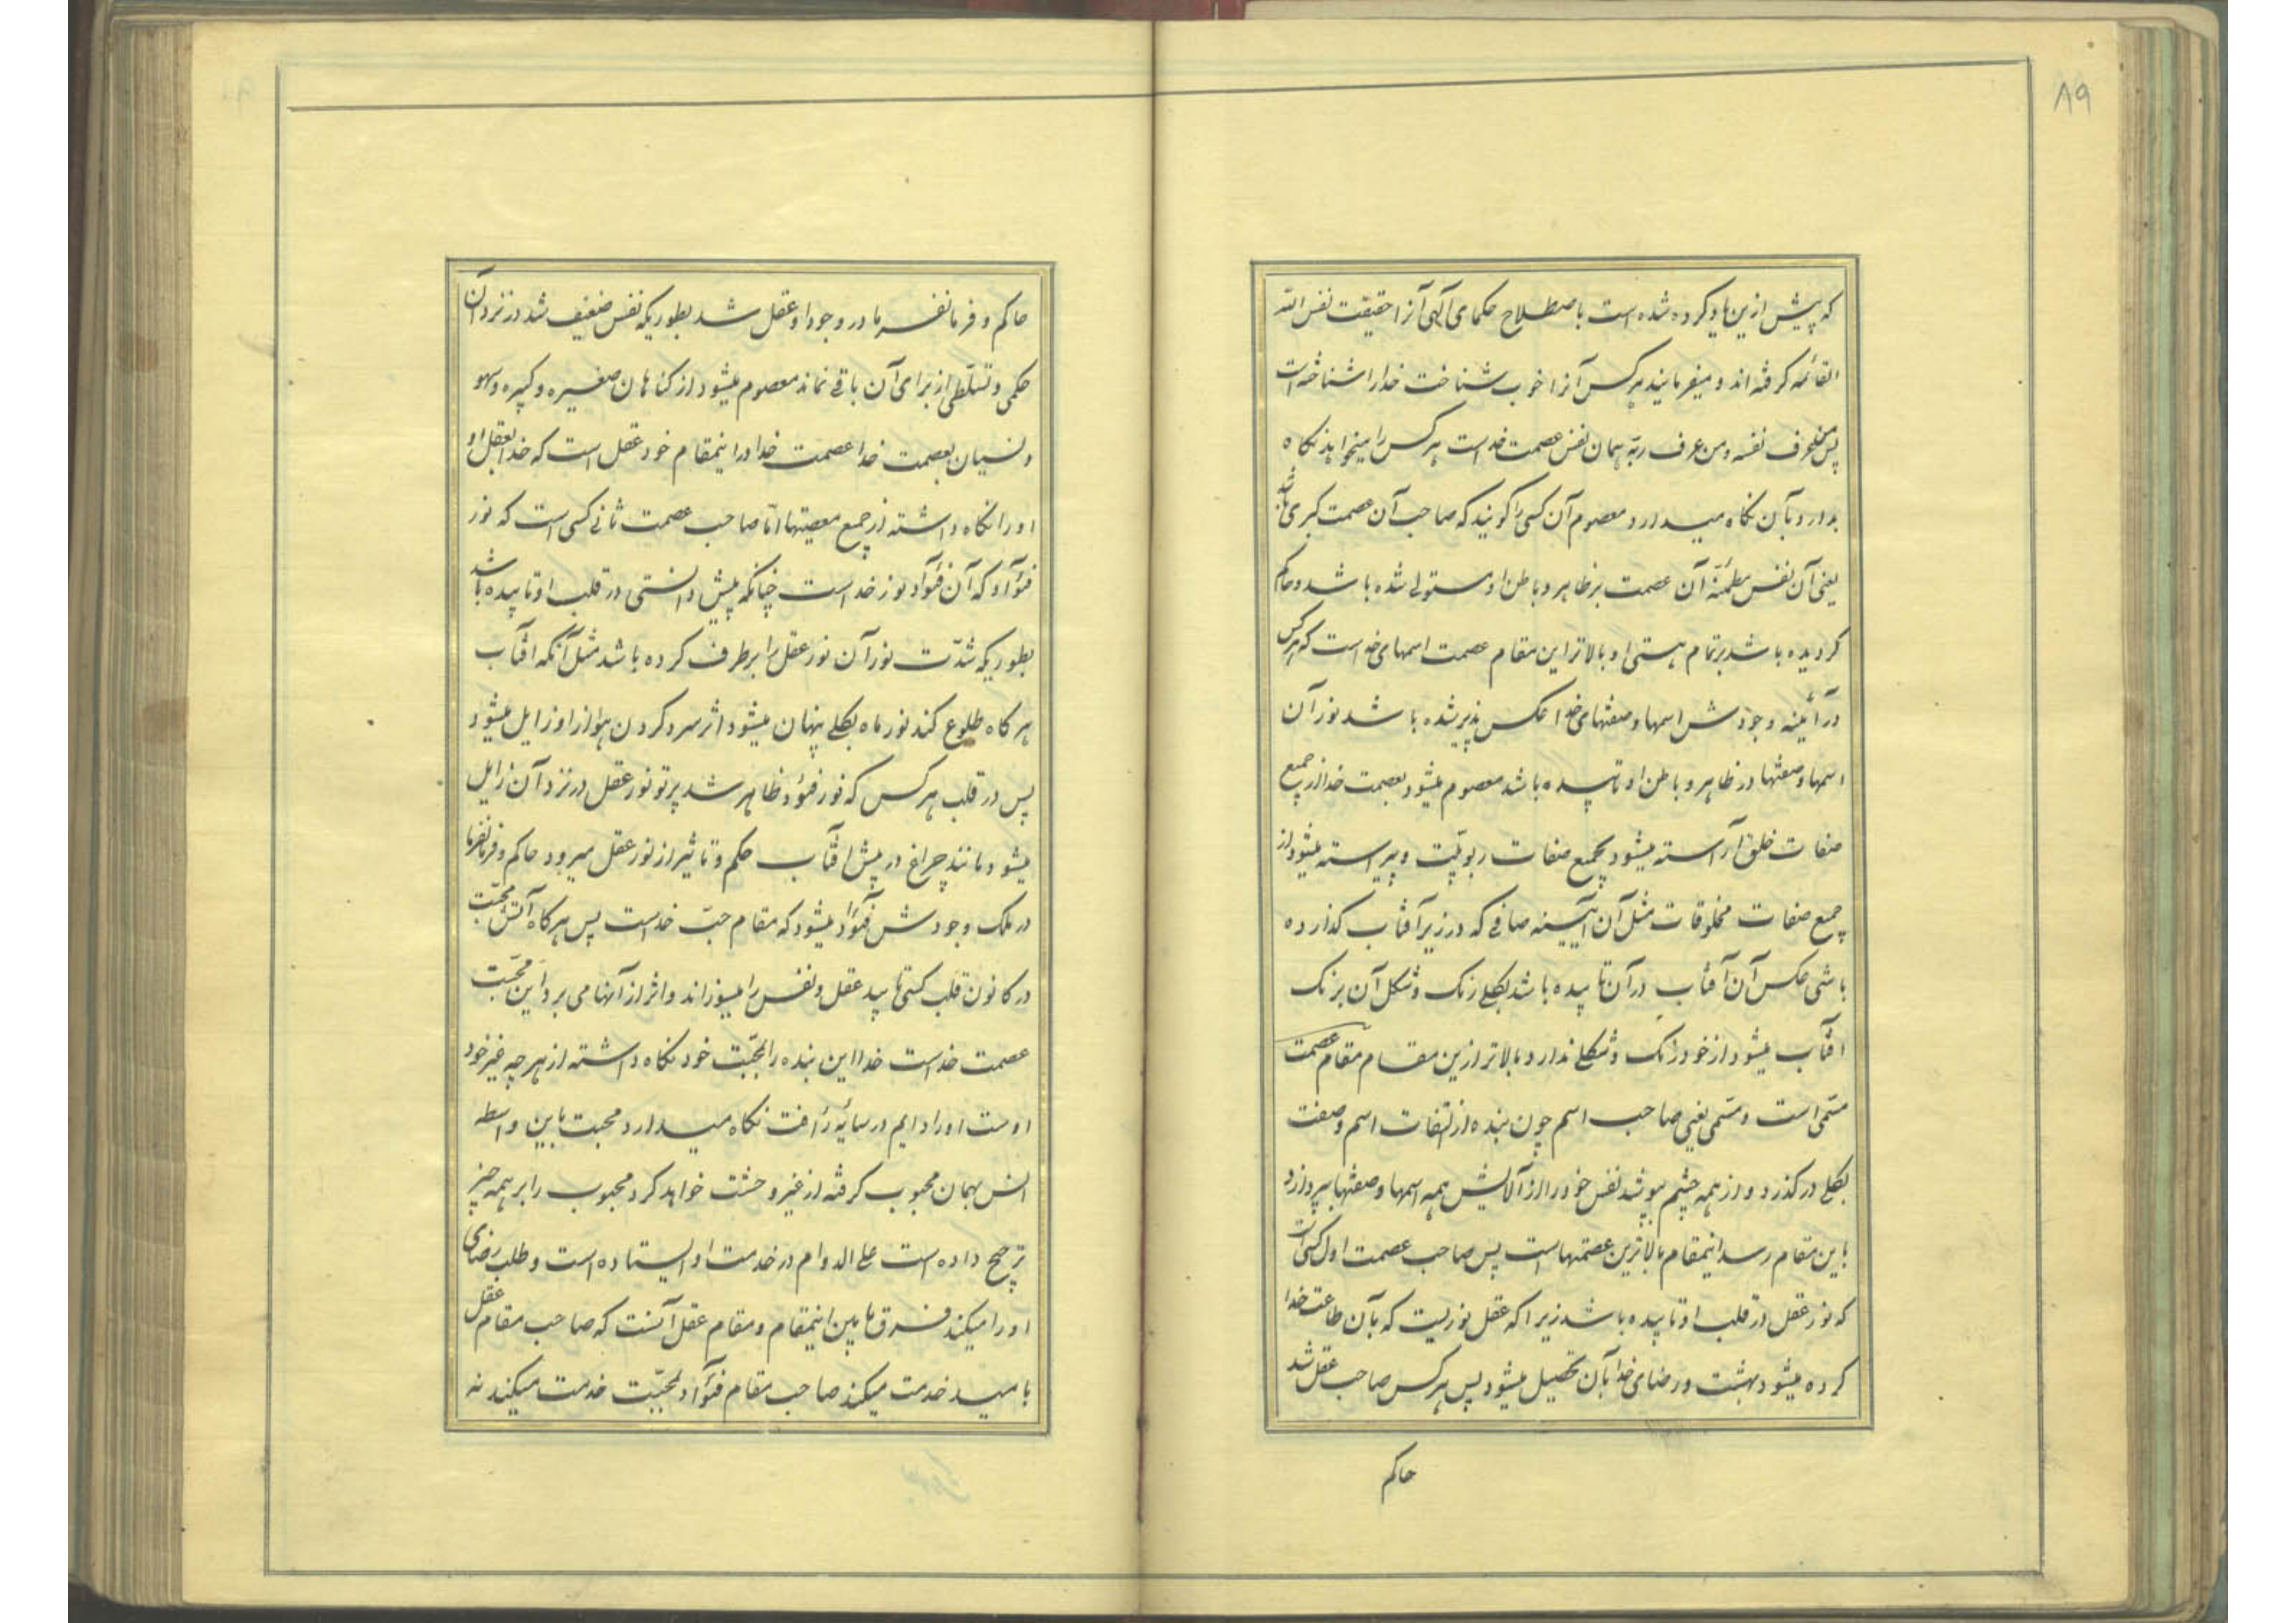 ۸۹
که پیش ازین یاد کرده شده است باصطلاح حکمای آلهی آنرا حقیقت نفس الله
القائمه گرفته اند و میفرمایند هر کس آنرا خوب شناخت خدا را شناخته است
پس من عرف نفسه و من عرف ربّه همان نفس عصمت خداست هر کس را میخواهد نگاه
بدارد بآن نگاه میدارد و معصوم آن کسی را گویند که صاحب آن عصمت کبری باشد
یعنی آن نفس مطمئنّه آن عصمت بر ظاهر و باطن او مستولی شده باشد و حاکم
گردیده باشد بر تمام هستی او بالاتر از این مقام عصمت اسمهای خداست که هر کس
در آئینه وجودش اسمها و صفتهای خدا عکس پذیر شده باشد نور آن
اسمها و صفتها در ظاهر و باطن او تابیده باشد معصوم میشود بعصمت خدا از جمیع
صفات خلق آراسته میشود بجمیع صفات ربوبیّت و پیراسته میشود از
جمیع صفات مخلوقات مثل آن آیینه صافی که در زیر آفتاب گذارده
باشی عکس آن آفتاب در آن تابیده باشد بکلی رنگ و شکل آن برنگ
آفتاب میشود از خود رنگ و شکلی ندارد بالاتر ازین مقام مقام عصمت
مسمّی است و مسمّی یعنی صاحب اسم چون بنده از التفات اسم و صفت
بکلی در گذرد و از همه چشم بپوشد نفس خود را از آلایش همه اسمها و صفتها بپردازد
باین مقام رسد اینمقام بالاترین عصمتهاست پس صاحب عصمت اول کسی است
که نور عقل در قلب او تابیده باشد زیرا که عقل نوریست که بآن طاعت خدا
کرده میشود و بهشت و رضای خدا بآن تحصیل میشود پس هر کس صاحب عقل شد
حاکم
حاکم و فرمانفرما در وجود او عقل شد بطوریکه نفس ضعیف شد در نزد آن
حکمی و تسلّطی از برای آن باقی نماند معصوم میشود از گناهان صغیره و کبیره و سهو
و نسیان بعصمت خدا عصمت خدا در اینمقام خود عقل است که خدا بعقل او
او را نگاه داشته از جمیع معصیتها امّا صاحب عصمت ثانی کسی است که نور
فؤآد که آن فؤآد نور خداست چنانکه پیش دانستی در قلب او تابیده باشد
بطوریکه شدّت نور آن نور عقل را برطرف کرده باشد مثل آنکه آفتاب
هر گاه طلوع کند نور ماه بکلی پنهان میشود اثر سرد کردن هوا از او زایل میشود
پس در قلب هر کس که نور فؤد ظاهر شد پرتو نور عقل در نزد آن زایل
میشود مانند چراغ در پیش آفتاب حکم و تاثیر از نور عقل میرود حاکم و فرمانفرما
در ملک وجودش فؤآد میشود که مقام حبّ خداست پس هر گاه آتش محبّت
در کانون قلب کسی تابید عقل و نفس را میسوزاند و اثر از آنها می برد این محبّت
عصمت خداست خدا این بنده را بمحبّت خود نگاه داشته از هر چه غیر خود
اوست او را دایم در سایه رأفت نگاه میدارد و محبت باین واسطه
انس بهمان محبوب گرفته از غیر وحشت خواهد کرد محبوب را بر همه چیز
ترجیح داده است علی الدوام در خدمت او ایستاده است و طلب رضای
او را میکند فرق ما بین اینمقام و مقام عقل آنست که صاحب مقام عقل
بامید خدمت میکند صاحب مقام فؤآد بمحبّت خدمت میکند نه